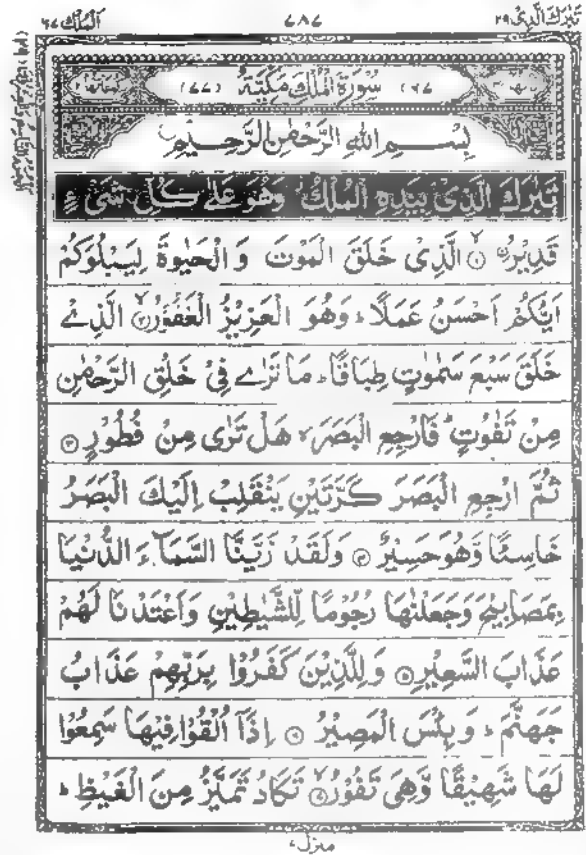 تَبٰرَكَ الَّذِیْ ۲۹ ۷۸۷ اَلْمُلْك ۶۷
(۶۷) سُوْرَةُ الْمُلْكِ مَكِّیَّةٌ (۷۷)
بِسْمِ اللّٰهِ الرَّحْمٰنِ الرَّحِیْمِ
تَبٰرَكَ الَّذِیْ بِیَدِهِ الْمُلْكُ وَهُوَ عَلٰی كُلِّ شَیْءٍ
قَدِیْرُۙ ۱ الَّذِیْ خَلَقَ الْمَوْتَ وَ الْحَیٰوةَ لِیَبْلُوَكُمْ
اَیُّكُمْ اَحْسَنُ عَمَلًاؕ وَهُوَ الْعَزِیْزُ الْغَفُوْرُۙ ۲ الَّذِیْ
خَلَقَ سَبْعَ سَمٰوٰتٍ طِبَاقًاؕ مَا تَرٰی فِیْ خَلْقِ الرَّحْمٰنِ
مِنْ تَفٰوُتٍؕ فَارْجِعِ الْبَصَرَۙ هَلْ تَرٰی مِنْ فُطُوْرٍ ۳
ثُمَّ ارْجِعِ الْبَصَرَ كَرَّتَیْنِ یَنْقَلِبْ اِلَیْكَ الْبَصَرُ
خَاسِئًا وَّهُوَ حَسِیْرٌ ۴ وَلَقَدْ زَیَّنَّا السَّمَآءَ الدُّنْیَا
بِمَصَابِیْحَ وَجَعَلْنٰهَا رُجُوْمًا لِّلشَّیٰطِیْنِ وَاَعْتَدْنَا لَهُمْ
عَذَابَ السَّعِیْرِ ۵ وَلِلَّذِیْنَ كَفَرُوْا بِرَبِّهِمْ عَذَابُ
جَهَنَّمَؕ وَبِئْسَ الْمَصِیْرُ ۶ اِذَاۤ اُلْقُوْا فِیْهَا سَمِعُوْا
لَهَا شَهِیْقًا وَّهِیَ تَفُوْرُۙ ۷ تَكَادُ تَمَیَّزُ مِنَ الْغَیْظِؕ
منزل۷